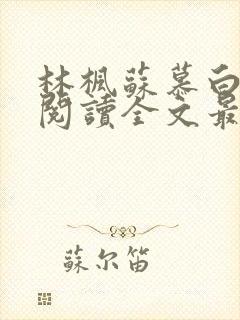 林楓蘇慕白
閱讀全文最
蘇尔笛